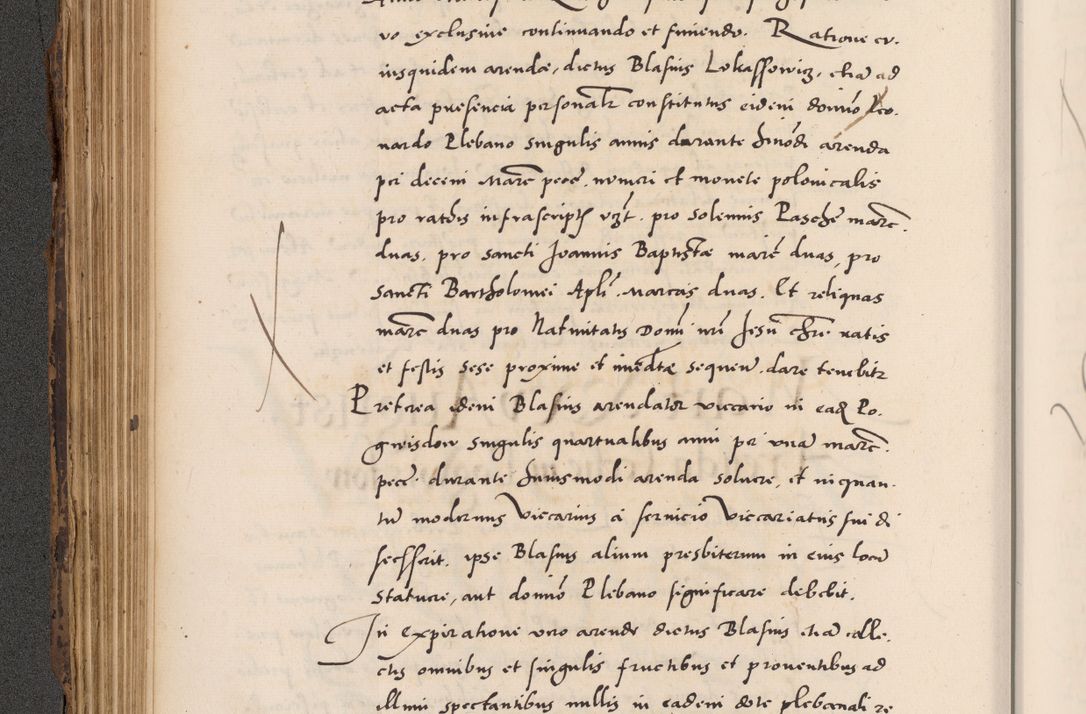 vo exclusive continuando et finiendo. Ratione cu.
iusquidem arendæ, dictus Blasius Lukassowicz, etiã ad
acta presencia personalr̃ constitutus eidem domĩo Leo.
nardo Plebano singulis annis durante hmõdi arenda
per decem Marc̃ pecc̃. numeri et monete polonicalis
pro ratis infrascriptis vzt. pro solennis Pasche marc̃.
duas. pro sancti Joannis Baptistæ marc̃ duas, pro
sancti Bartholomei Apli. Marcas duas. Et reliquas
marc̃ duas pro Natiuitatis Domi nri Jesu chre ratis
et festis sese proxime et imediate sequeñ. dare tenebitr
Preterea idem Blasius arendator viccario in eadẽ Po.
gwisdow singulis quartualibus anni per vnã marc̃.
pecc̃. durante huiusmodi arenda soluere, et inquan.
tũ modernus viccarius a seruicio viccariatus sui di
scesserit, ipse Blasius alium presbiterum in eius locũ
statuere, aut domĩo Plebano significare debebit.
In expiratione vero arende dictus Blasius etiã colle.
ctis omnibus et singulis fructibus et prouentibus ad
illum spectantibus nullis in eadem dote plebanali re